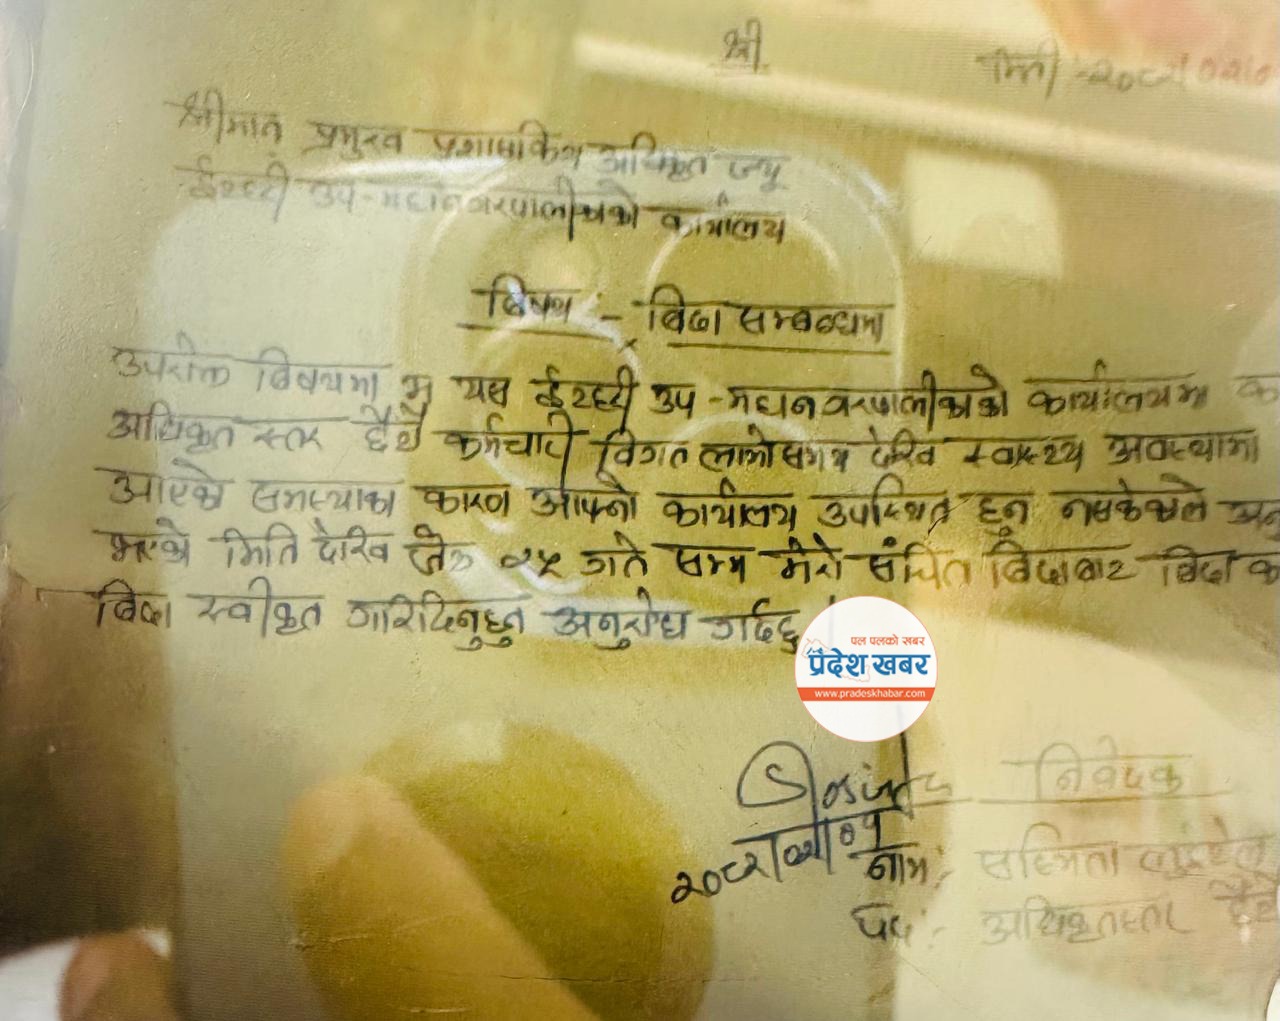 श्री
मिती -२०८२
श्रीमान प्रमुख प्रशासकिय अधिकृत ज्यू
ईटहरी उप-महानगरपालीकाको कार्यालय
बिषय :- बिदा सम्बन्धमा
उपरोक्त बिषयमा म यस ईटहरी उप-महानगरपालीकाको कार्यालयमा
अधिकृत स्तर छैठौ कर्मचारी विगत लामो समय देखि स्वास्थ्य अवस्थामा
आएको समस्याका कारण आफ्नो कार्यालय उपस्थित हुन नसकेकाले
भएको मिति देखि जेठ २५ गते सम्म मेरो संचित बिदाबाट बिदा
बिदा स्वीकृत गरिदिनुहुन अनुरोध गर्दछु
पल पलको खबर
प्रदेश खबर
www.pradeskhabar.com
निवेदक
नाम: सष्मिता
पद :- अधिकृतस्तर